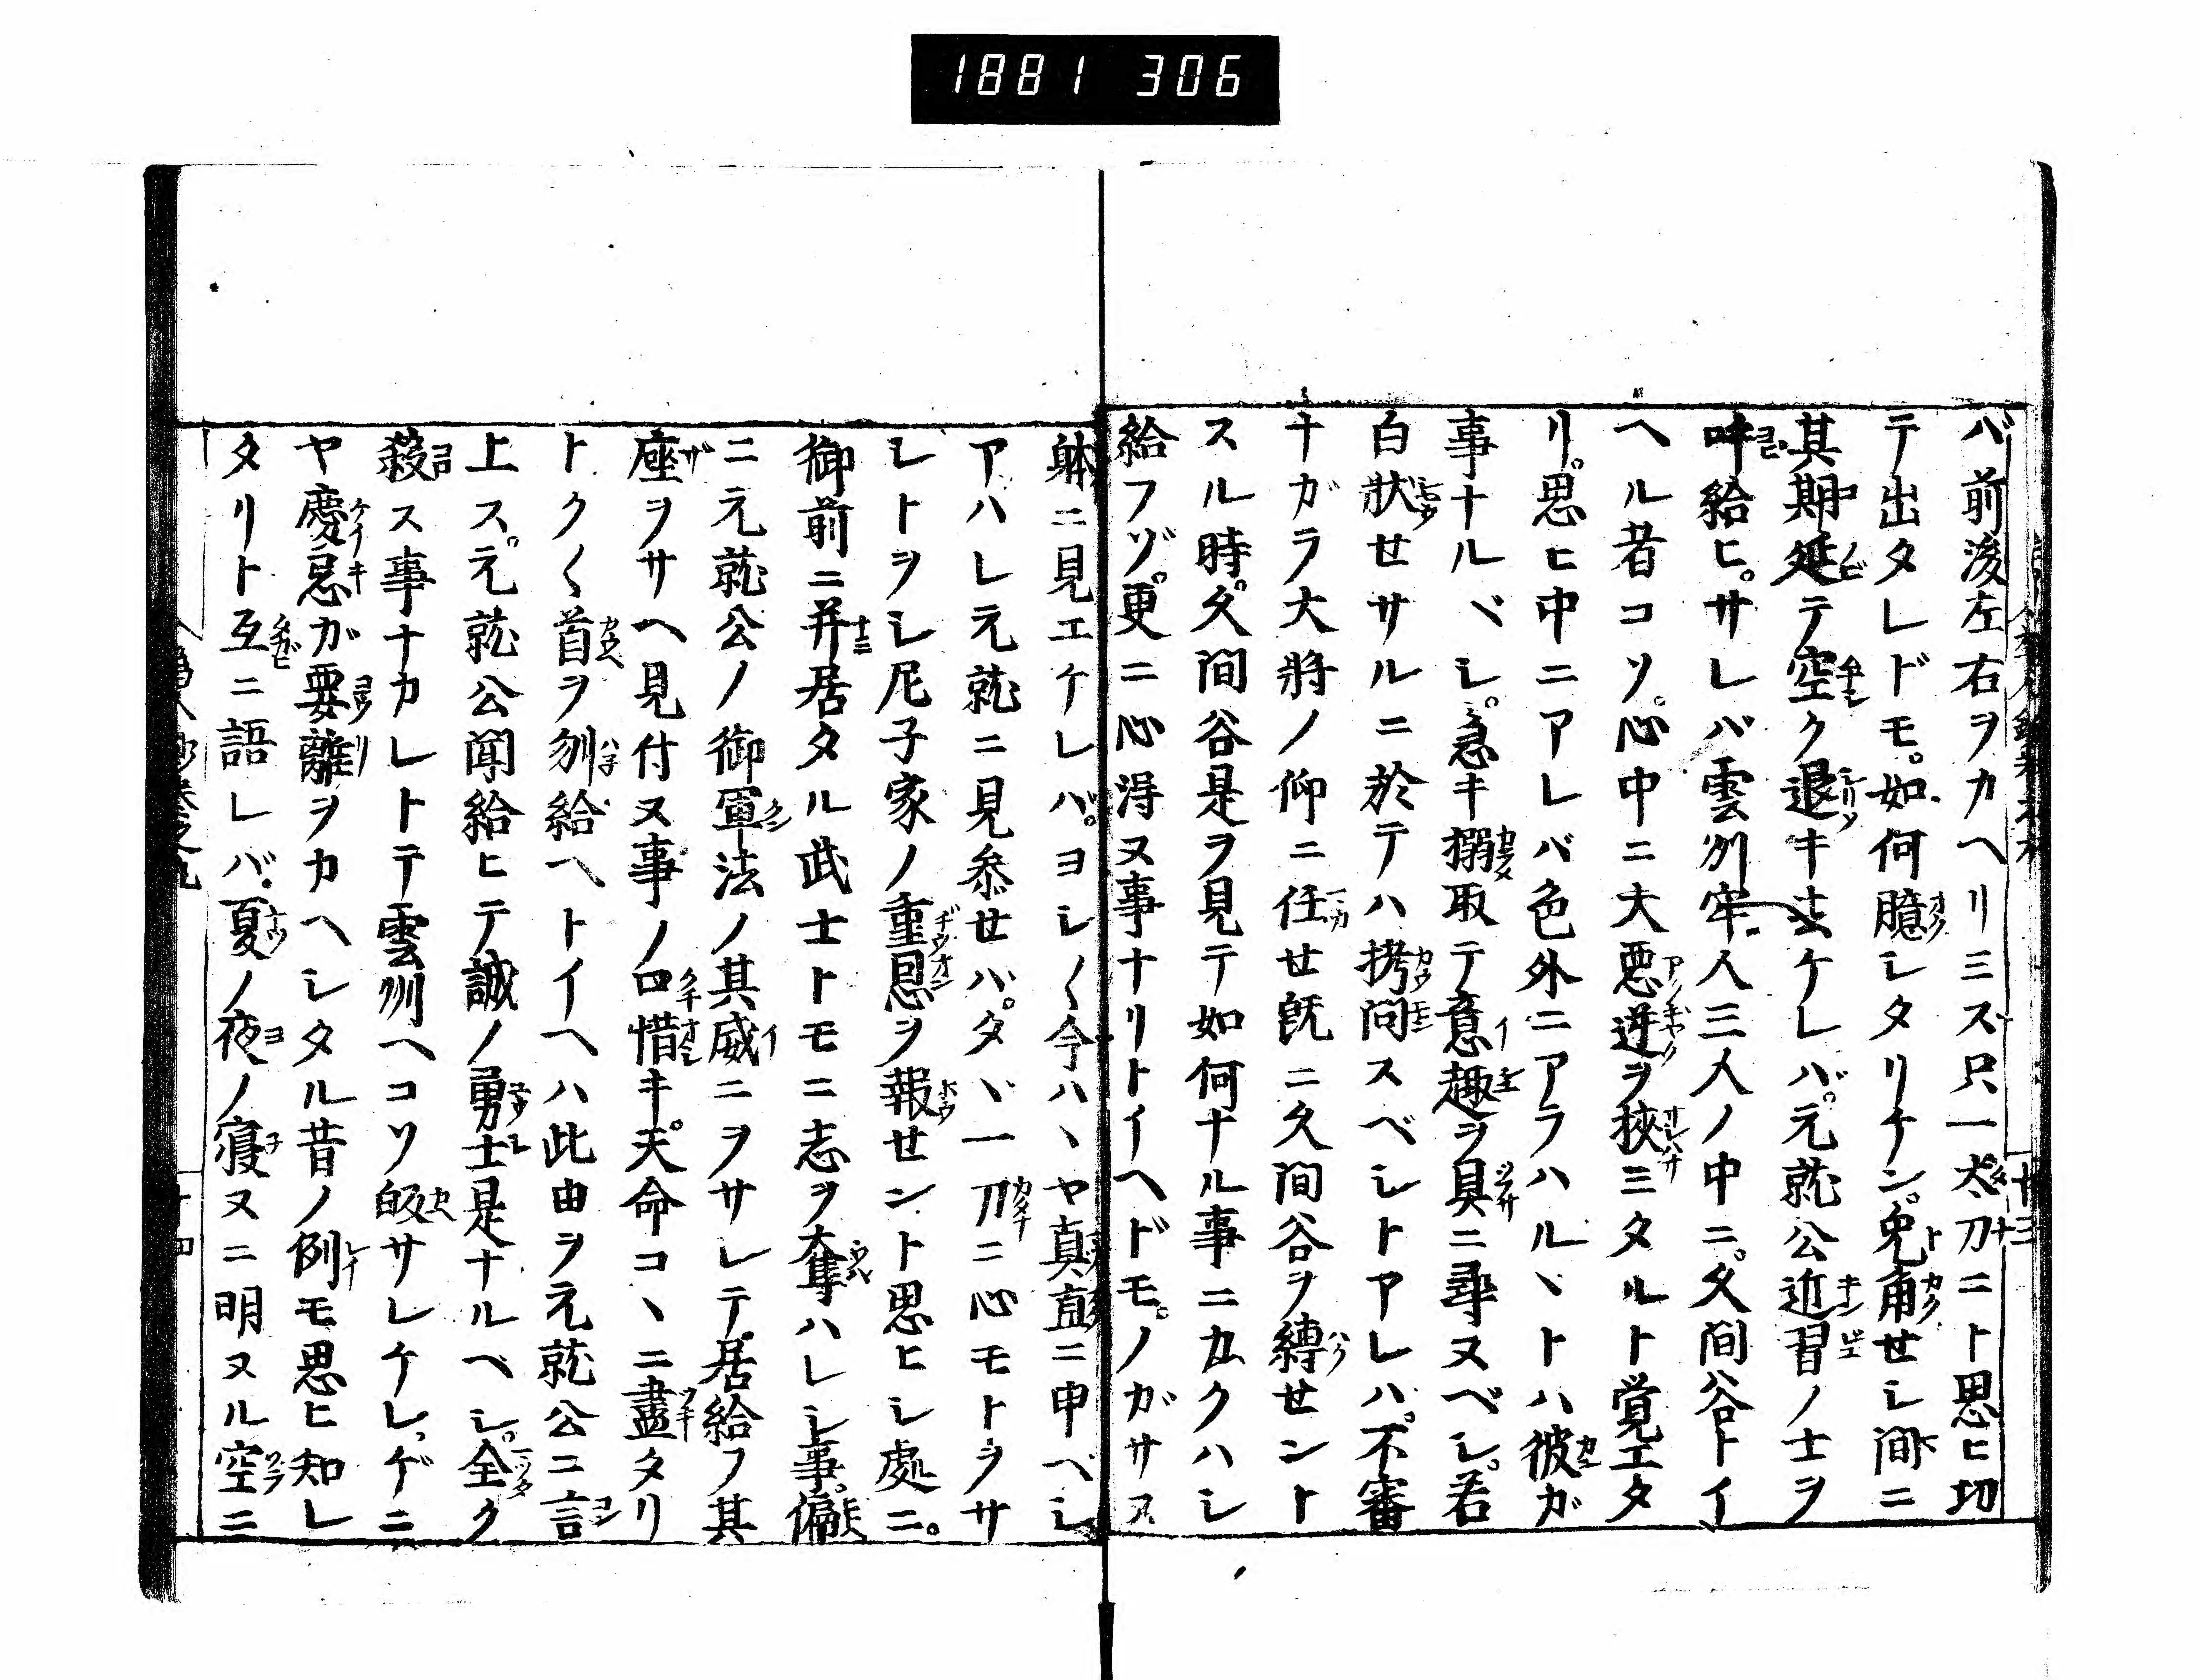 1881 306
バ前後左右ヲカヘリミズ只一太刀ニト思ヒ切
テ出タレドモ。如何臆シタリケン。兔角セシ間ニ
其期延テ空ク退キ去ケレバ。元就公近習ノ士ヲ
呼給ヒ。サレバ雲州牢人三人ノ中ニ。久間谷トイ
ヘル者コソ。心中ニ大悪逆ヲ挾ミタルト覚エタ
リ。思ヒ中ニアレバ色外ニアラハルヽトハ彼ガ
事ナルベシ。急キ搦取テ意趣ヲ具ニ尋ヌベシ。若
白狀セサルニ於テハ拷問スベシトアレハ。不審
ナガラ大將ノ仰ニ任セ既ニ久間谷ヲ縛セント
スル時。久間谷是ヲ見テ如何ナル事ニカクハシ
給フゾ。更ニ心得ヌ事ナリトイヘドモ。ノガサヌ
躰ニ見エケレバ。ヨシ〱今ハヽヤ真直ニ申ベシ
アハレ元就ニ見参セハ。タヽ一刀ニ心モトヲサ
レトヲシ尼子家ノ重恩ヲ報セント思ヒシ處ニ。
御前ニ并居タル武士トモニ志ヲ奪ハレシ事。偏
ニ元就公ノ御軍法ノ其威ニヲサレテ。居給フ其
座ヲサヘ見付ヌ事ノ口惜キ。天命コヽニ盡タリ
トク〱首ヲ刎給ヘトイヘハ此由ヲ元就公ニ言
上ス。元就公聞給ヒテ誠ノ勇士是ナルベシ。全ク
殺ス事ナカレトテ雲州ヘコソ皈サレケレ。ゲニ
ヤ慶忌ガ要離ヲカヘシタル昔ノ例モ思ヒ知レ
タリト互ニ語レバ。夏ノ夜ノ寝ヌニ明ヌル空ニ